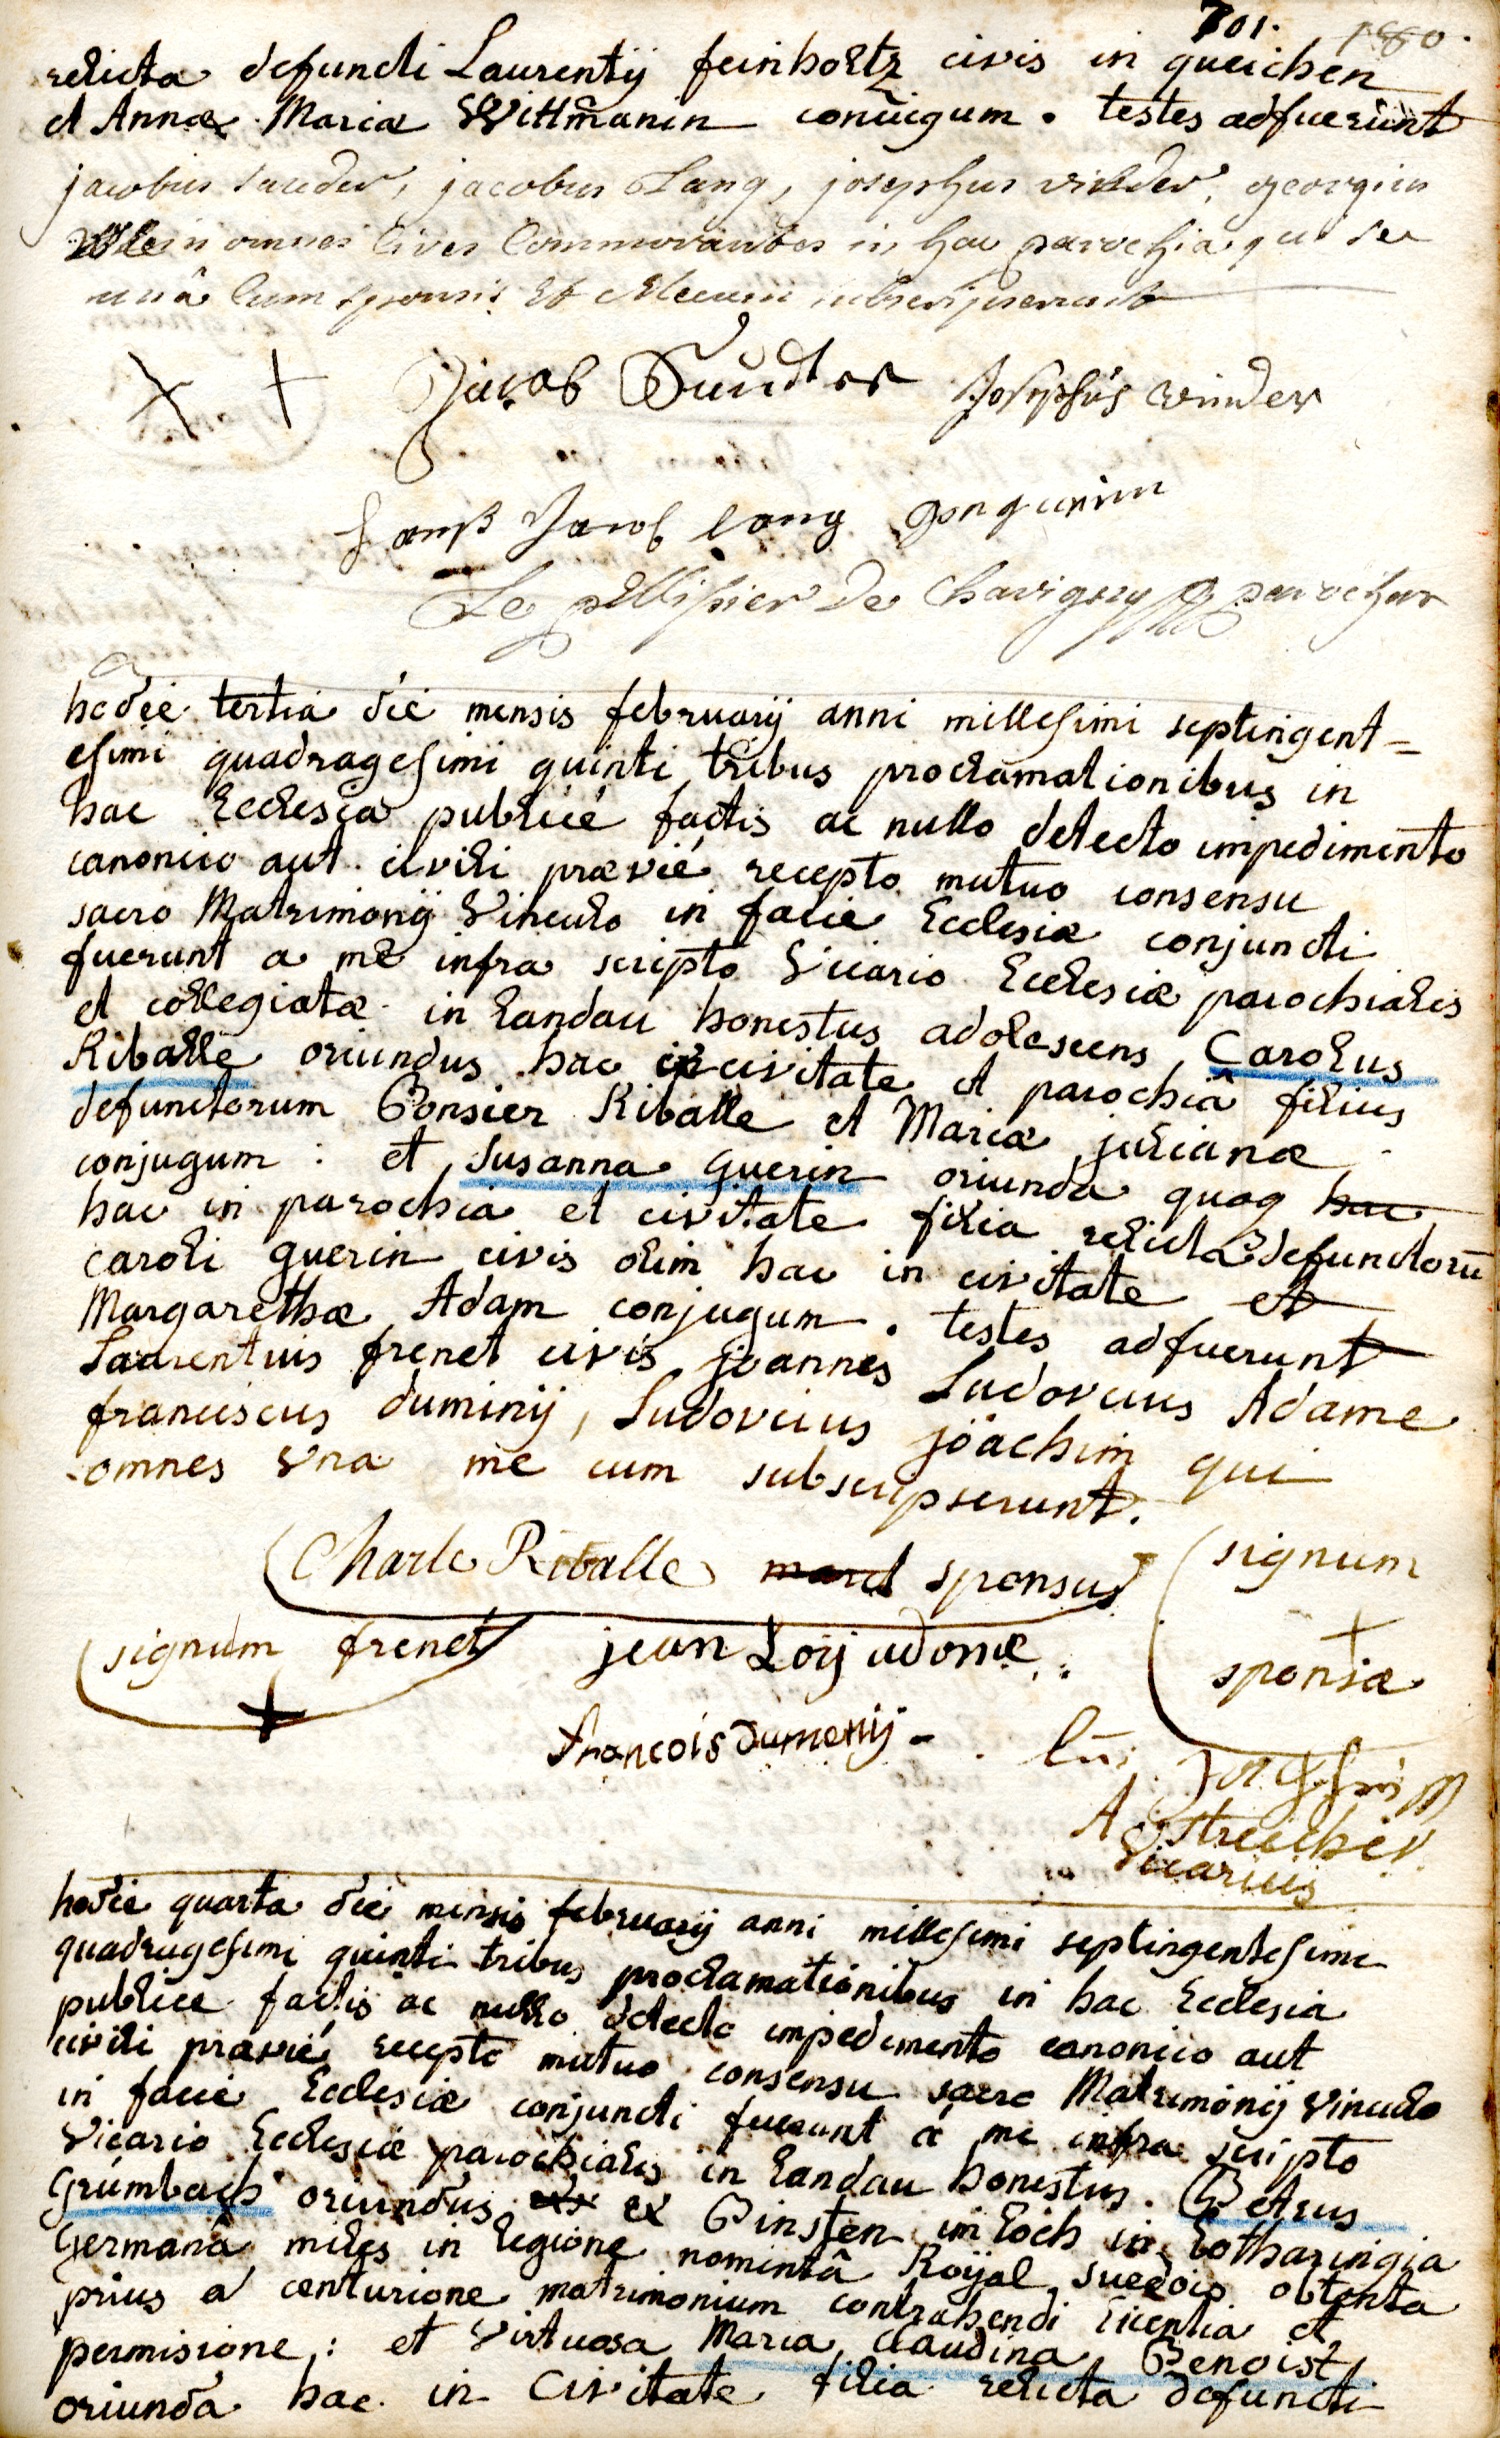 701. 1880.
relicta defuncti Laurentij feinholtz civis in queichen
et Annæ Mariæ Wittmanin coniugum. testes adfuerunt
jacobus sauder, jacobus Lang, josephus winder, georgius
Klein omnes Cives Commorantes in hac parochia qui se
unâ Cum sponsis Et Mecum subscripserunt
X + Jacob Sundter Josephus winder
Hanß Jacob lang
Le pellissier De Chavigny parochus
hodie tertia die mensis februarij anni millesimi septingent=
esimi quadragesimi quinti tribus proclamationibus in
hac Ecclesia publicé factis ac nullo detecto impedimento
canonico aut civili prævié recepto mutuo consensu
sacro Matrimonij Vinculo in facie Ecclesiæ conjuncti
fuerunt a me infra scripto Vicario Ecclesiæ parochialis
et collegiatæ in Landau honestus adolescens Carolus
Riballe oriundus hac civitate et parochiâ filius
defunctorum Ponsier Riballe et Mariæ julianæ
conjugum : et Susanna Guerin oriunda quoq hac
hac in parochia et civitate filia relicta defunctorū
caroli guerin civis olim hac in civitate et
Margarethæ Adam conjugum. testes adfuerunt
Laurentius frenet civis, joannes Ludovicus Adame
franciscus duminij, Ludovicus jöachim qui
omnes Vna me cum subscripserunt.
Charle Riballe sponsus signum
signum frenet jean Loij adame + sponsæ
+
francois dumenij - Joachim
A Streicher
Vicarius
hodie quarta die mensis februarij anni millesimi septingentesimi
quadragesimi quinti tribus proclamationibus in hac Ecclesia
publice factis ac nullo detecto impedimento canonico aut
civili prævié recepto mutuo consensu sacro Matrimonij Vinculo
in facie Ecclesiæ conjuncti fuerunt á me infra scripto
Vicario Ecclesiæ parochialis in Landau honestus. Petrus
Grúmbach oriundus ex Pinsten im Loch in Lotharingia
Germanâ miles in legione nomintâ Roijal suedois obtenta
prius a centurione matrimonium contrahendi licentia et
permisione : et Virtuosa Maria Claudina Benoist
oriunda hac in Civitate filia relicta defuncti